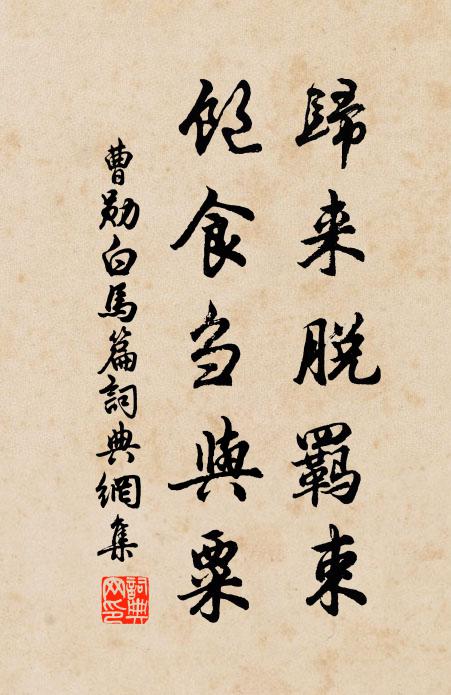 歸来脱羈束
飽食芻與粟
曹勛白馬篇詞典網集
詞典网印